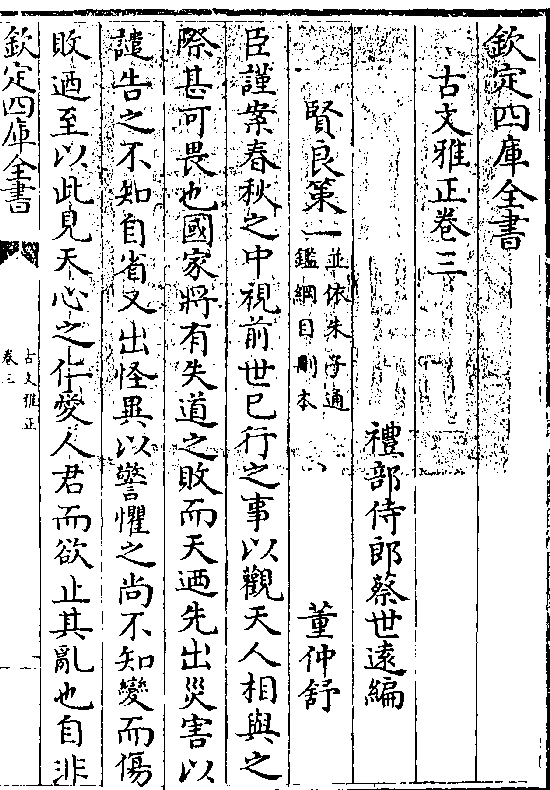 欽定四庫全書
古文雅正卷三
禮部侍郎蔡世遠編
賢良策一 並依朱子通鑑綱目刪本 董仲舒
臣謹案春秋之中視前世已行之事以觀天人相與之
際甚可畏也國家將有失道之敗而天迺先出災害以
譴告之不知自省又出怪異以警懼之尚不知變而傷
敗迺至以此見天心之仁愛人君而欲止其亂也自非
欽定四庫全書
古文雅正
卷三